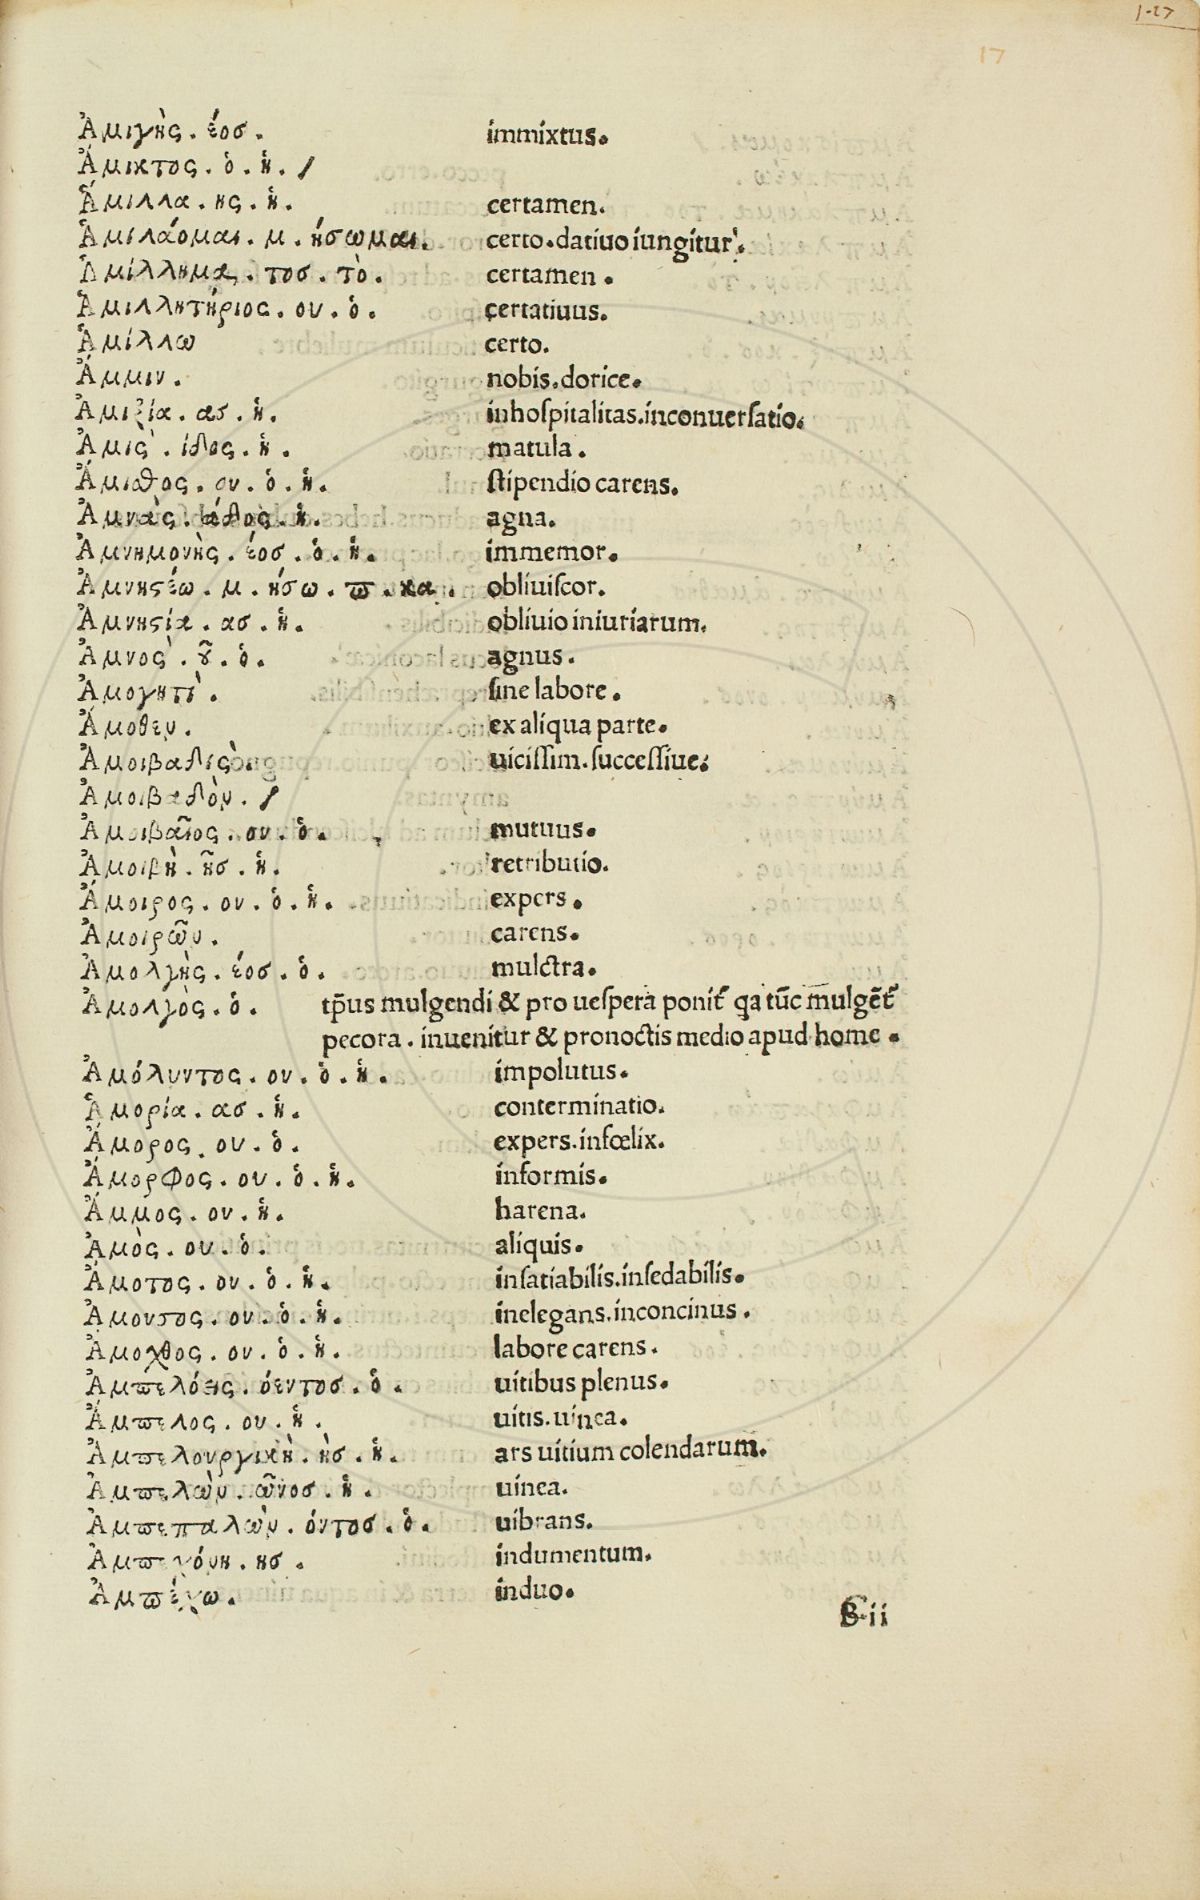 1-27
17
Ἀμιγὴς . έοσ . immixtus.
Ἄμικτος . ὁ . ἡ . /
Ἅμιλλα . ης . ἡ . certamen.
Ἁμιλάομαι . μ . ήσωμαι . certo . datiuo iungitur.
Ἁμίλλημα . τοσ . τὸ . certamen .
Ἁμιλλητήριος . ου . ὁ . certatiuus.
Ἁμίλλω certo.
Ἄμμιν . nobis . dorice.
Ἀμιξία . ασ . ἡ . inhoſpitalitas . inconuerſatio.
Ἀμις̀ . ίδος . ἡ . matula .
Ἄμισθος . ου . ὁ . ἡ . ſtipendio carens.
Ἀμνὰς . άδος . ἡ . agna.
Ἀμνημονὴς . έοσ . ὁ . ἡ . immemor.
Ἀμνηϛέω . μ . ήσω . ϖ . κα . obliuiſcor.
Ἀμνηϛία . ασ . ἡ . obliuio iniuriarum.
Ἀμνος̀ . οῦ . ὁ . agnus .
Ἀμογητὶ . ſine labore .
Ἄμοθεν . ex aliqua parte.
Ἀμοιβαδὶς . uiciſſim . ſucceſſiue.
Ἀμοιβαδὸν . /
Ἀμοιβαῖος . ου . ὁ . mutuus.
Ἀμοιβὴ . ῆσ . ἡ . retributio.
Ἄμοιρος . ου . ὁ . ἡ . expers .
Ἀμοιρῶν . carens.
Ἀμολγὴς . έοσ . ὁ . mulctra.
Ἀμολγὸς . ὁ . tp̄us mulgendi & pro ueſpera ponit᷑ qa tūc mulgēt᷑
pecora . inuenitur & pro noctis medio apud home .
Ἀμόλυντος . ου . ὁ . ἡ . impolutus.
Ἁμορία . ασ . ἡ . conterminatio.
Ἄμορος . ου . ὁ . expers . infœlix.
Ἄμορφος . ου . ὁ . ἡ . informis.
Ἄμμος . ου . ἡ . harena.
Ἀμὸς . ου . ὁ . aliquis.
Ἄμοτος . ου . ὁ . ἡ . inſatiabilis . inſedabilis.
Ἄμουσος . ου . ὁ . ἡ . inelegans . inconcinus .
Ἄμοχθος . ου . ὁ . ἡ . labore carens .
Ἀμϖελόεις . όεντοσ . ὁ . uitibus plenus.
Ἄμϖελος . ου . ἡ . uitis . uinea.
Ἀμϖελουργικὴ . ὴσ . ἡ . ars uitium colendarum.
Ἀμϖελὼν . ῶνοσ . ἡ . uinea.
Ἀμϖεπαλὼν . όντοσ . ὁ . uibrans.
Ἀμϖεχόνη . ησ . indumentum.
Ἀμϖέχω . induo.
ii